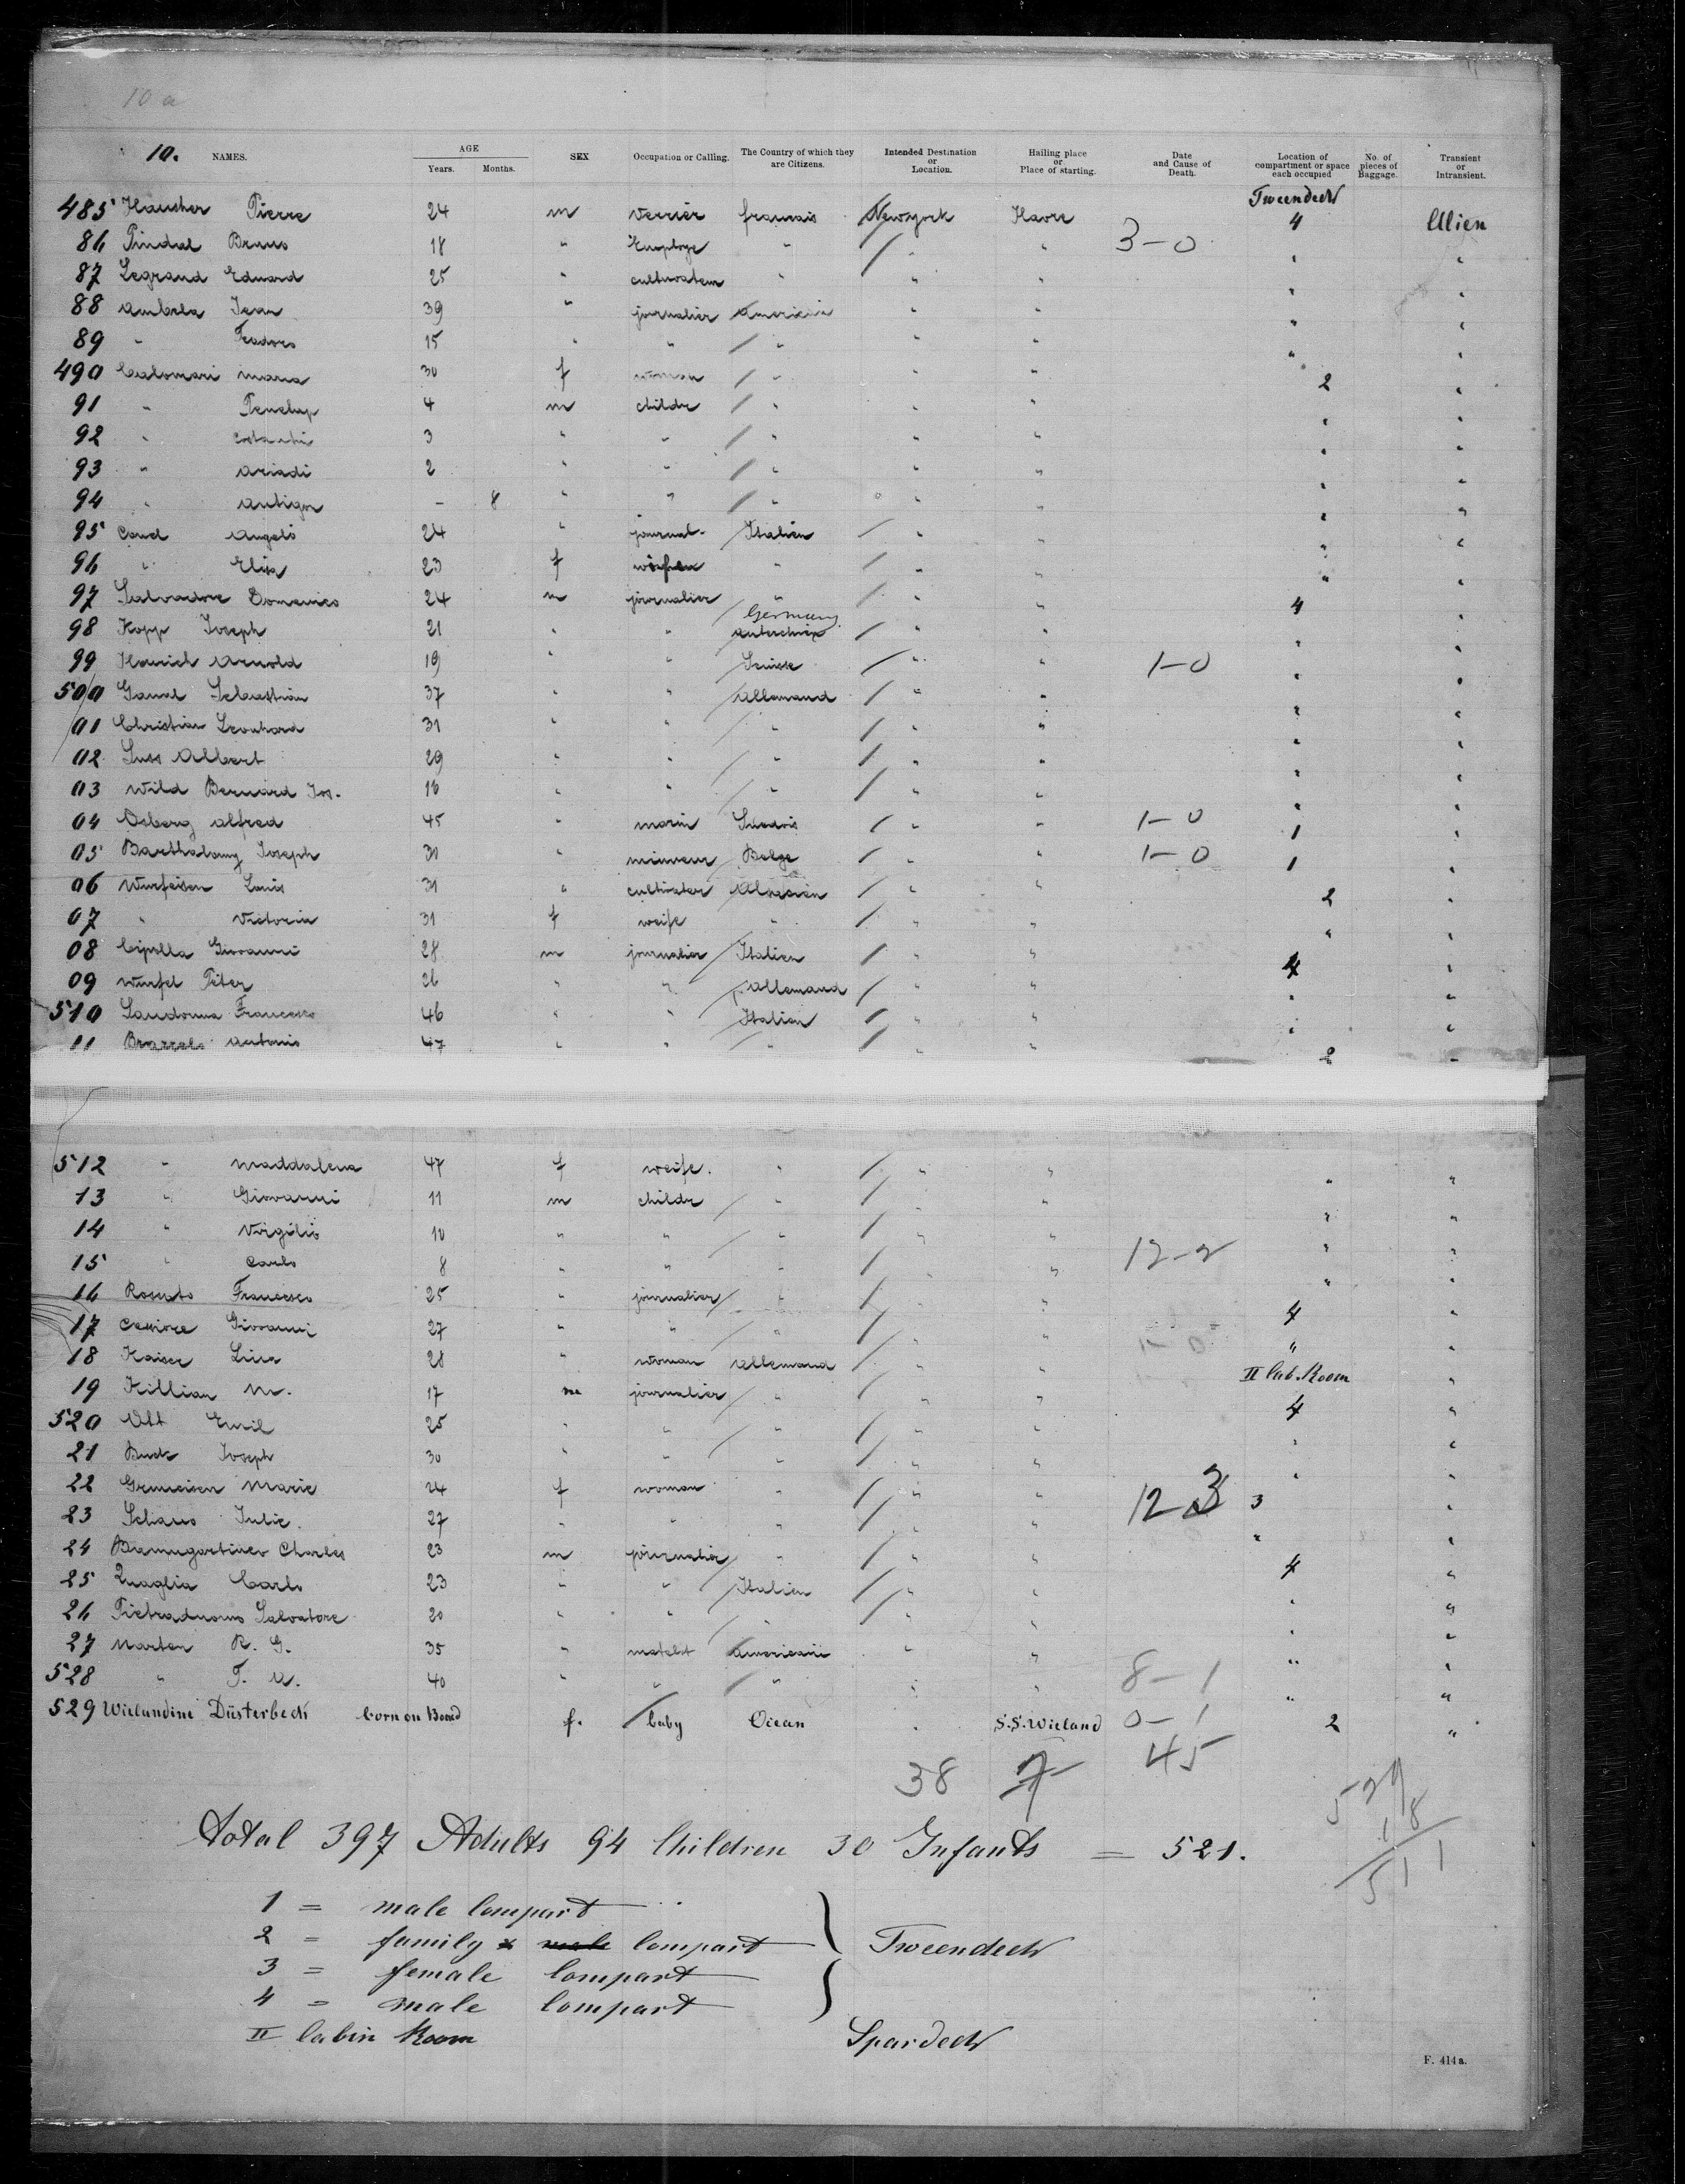 10 a
10. NAMES. AGE Years. Months. SEX Occupation or Calling. The Country of which they are Citizens. Intended Destination or Location. Hailing place or Place of starting. Date and Cause of Death. Location of compartment or space each occupied No. of pieces of Baggage. Transient or Intransient.
Tweendeck
485 Hausher Pierre 24 m verrier francais Newyork Havre 4 Alien
86 Pindal Bruno 18 " Employe " " " 3-0 " "
87 Legrand Eduard 25 " cultivateur " " " " "
88 Ambela Jean 39 " journalier " " " "
89 " 15 " " " " " " "
490 Calomari Maria 30 f woman " " " 2 "
91 " Penelup 4 m childr " " " " "
92 " 3 " " " " " " "
93 " Ariadi 2 " " " " " " "
94 " Antigon - 8 " " " " " " "
95 Angelo 24 " journal. Italien " " " "
96 " Elisa 23 f " " " " "
97 Salvadore Domenico 24 m journalier " " " 4 "
Germany
98 Kopp Joseph 21 " " " " " "
99 Arnold 19 " " Suisse " " 1-0 " "
500 Sebastian 37 " " Allemand " " " "
01 Christian Leonhard 31 " " " " " " "
02 Suss Albert 29 " " " " " " "
03 Wild Bernard Jos. 16 " " " " " " "
04 Osberg Alfred 45 " marin Suedois " " 1-0 1 "
05 Barthalomy Joseph 30 " mineur Belge " " 1-0 1 "
06 Wurfeisen Louis 31 " cultivator Alsacien " " 2 "
07 " Victoria 31 f weife " " " " "
08 Cipolla Giovanni 28 m journalier Italien " " 4 "
09 Wurfel Peter 26 " " Allemand " " " "
510 Sandonna Francesco 46 " " Italien " " " "
11 Antonio 47 " " " " " 2 "
512 " Maddalena 47 f weife. " " " " "
13 " Giovanni 11 m childr " " " " "
14 " Virgilio 10 " " " " " " "
15 " Carlo 8 " " " " " 12-2 " "
16 Rossato Francesco 25 " journalier " " " " "
17 Giovanni 27 " " " " " 4 "
18 Kaiser Lina 28 " woman Allemand " " 1-0 " "
II Cab. Room
19 Killian M. 17 m journalier " " " 4 "
520 Ott Emil 25 " " " " " " "
21 Buck Joseph 30 " " " " " " "
22 Gruneisen Marie 24 f woman " " " 12-3 3 "
23 Schaus Julie. 27 " " " " " " "
24 Baumgartner Charles 23 m journalier " " " 4 "
25 Quaglia Carlo 23 " " Italien " " " "
26 Pietraduomo Salvatore 20 " " " " " " "
27 Marten R. G. 35 " " " " "
528 " F. A. 40 " " " " " 8-1 " "
529 Wielandine Düsterbeck born on Board f. baby Ocean " S.S. Wieland 0-1 2 "
38 7 45
529
18
511
Total 397 Adults 94 Children 30 Infants = 521.
1 = male Compart
2 = family & male Compart Tweendeck
3 = female Compart
4 = male Compart
II Cabin Room Spardeck
F. 414 a.